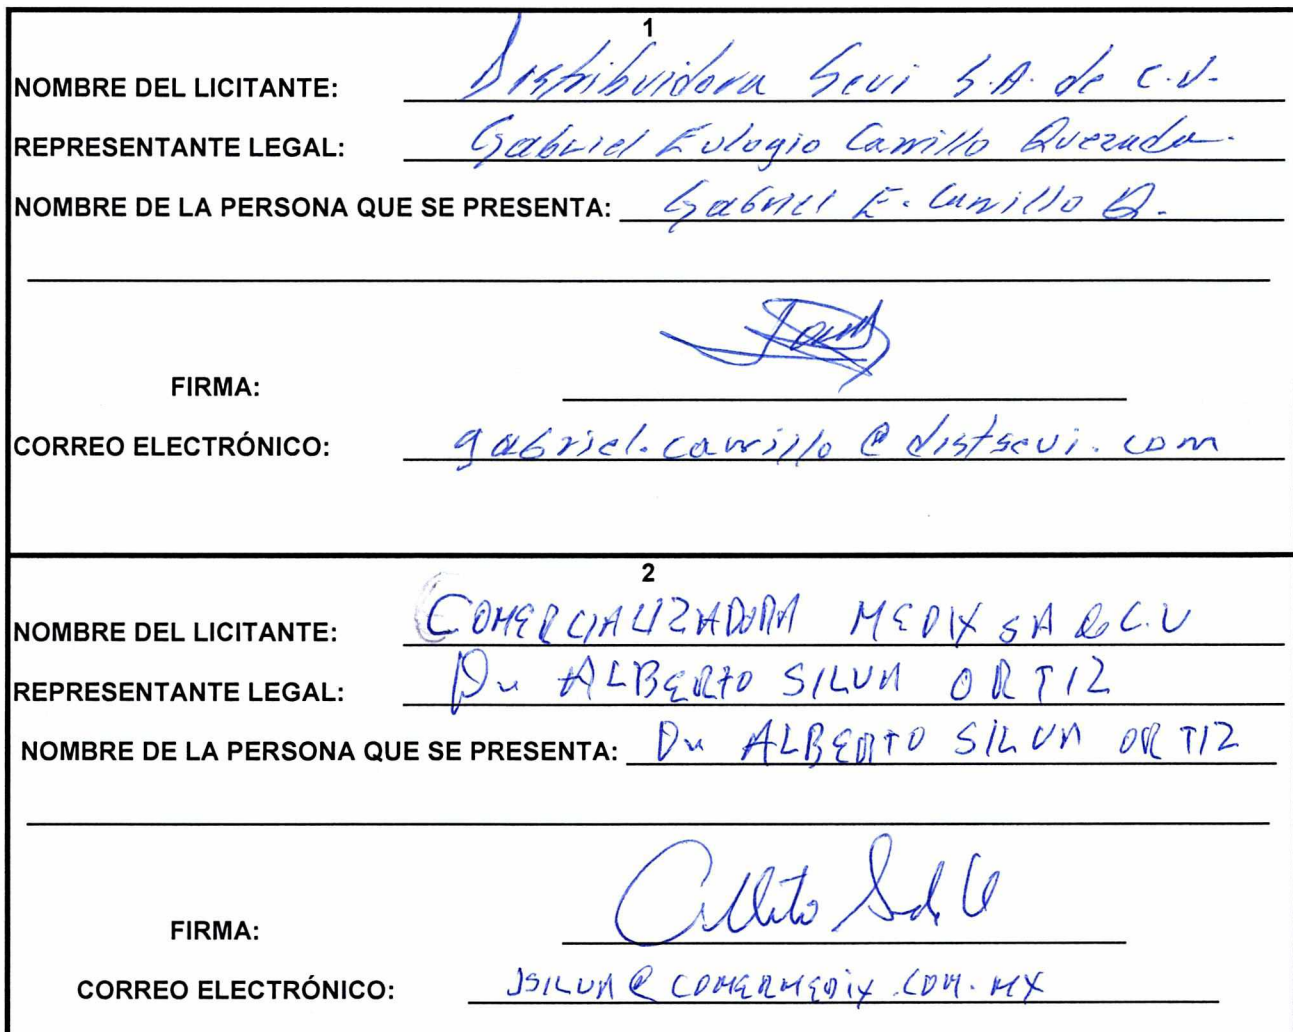 1
NOMBRE DEL LICITANTE: Distribuidora Sevi S.A. de C.V.
REPRESENTANTE LEGAL: Gabriel Eulogio Carrillo Quezada.
NOMBRE DE LA PERSONA QUE SE PRESENTA: Gabriel E. Carrillo Q.
FIRMA:
CORREO ELECTRÓNICO: gabriel.carrillo@distsevi.com
2
NOMBRE DEL LICITANTE: COMERCIALIZADORA MEDIX SA de C.V
REPRESENTANTE LEGAL: Dr ALBERTO SILVA ORTIZ
NOMBRE DE LA PERSONA QUE SE PRESENTA: Dr ALBERTO SILVA ORTIZ
FIRMA:
CORREO ELECTRÓNICO: JSILVA@COMERMEDIX.COM.MX